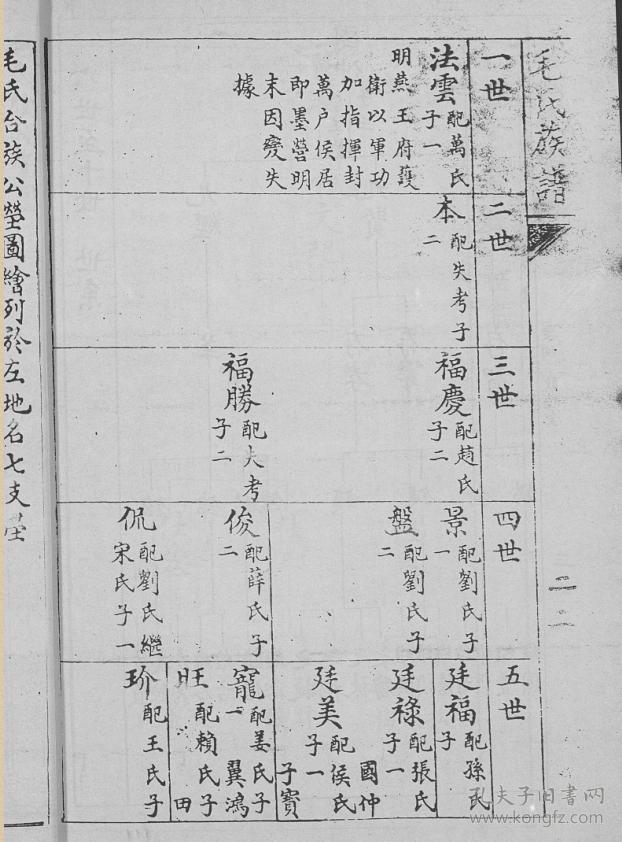 毛氏族譜
二
一世
法雲
配萬氏
子一
明燕王府護
衛以軍功
加指揮封
萬户侯居
即墨營明
末因變失
據
二世
本
配失考子
二
三世
福慶
配趙氏
子二
福勝
配失考
子二
四世
景
配劉氏子
一
盤
配劉氏子
二
俊
配薛氏子
二
侃
配劉氏繼
宋氏子一
五世
廷福
配孫氏
子
廷祿
配張氏
子一
國仲
廷美
配侯氏
子一
子寶
寵
配姜氏子
一
翼鴻
旺
配賴氏子
田
玠
配王氏子
毛氏合族公塋圖繪列於左地名七支塋
孔夫子旧書网
www.kongfz.com